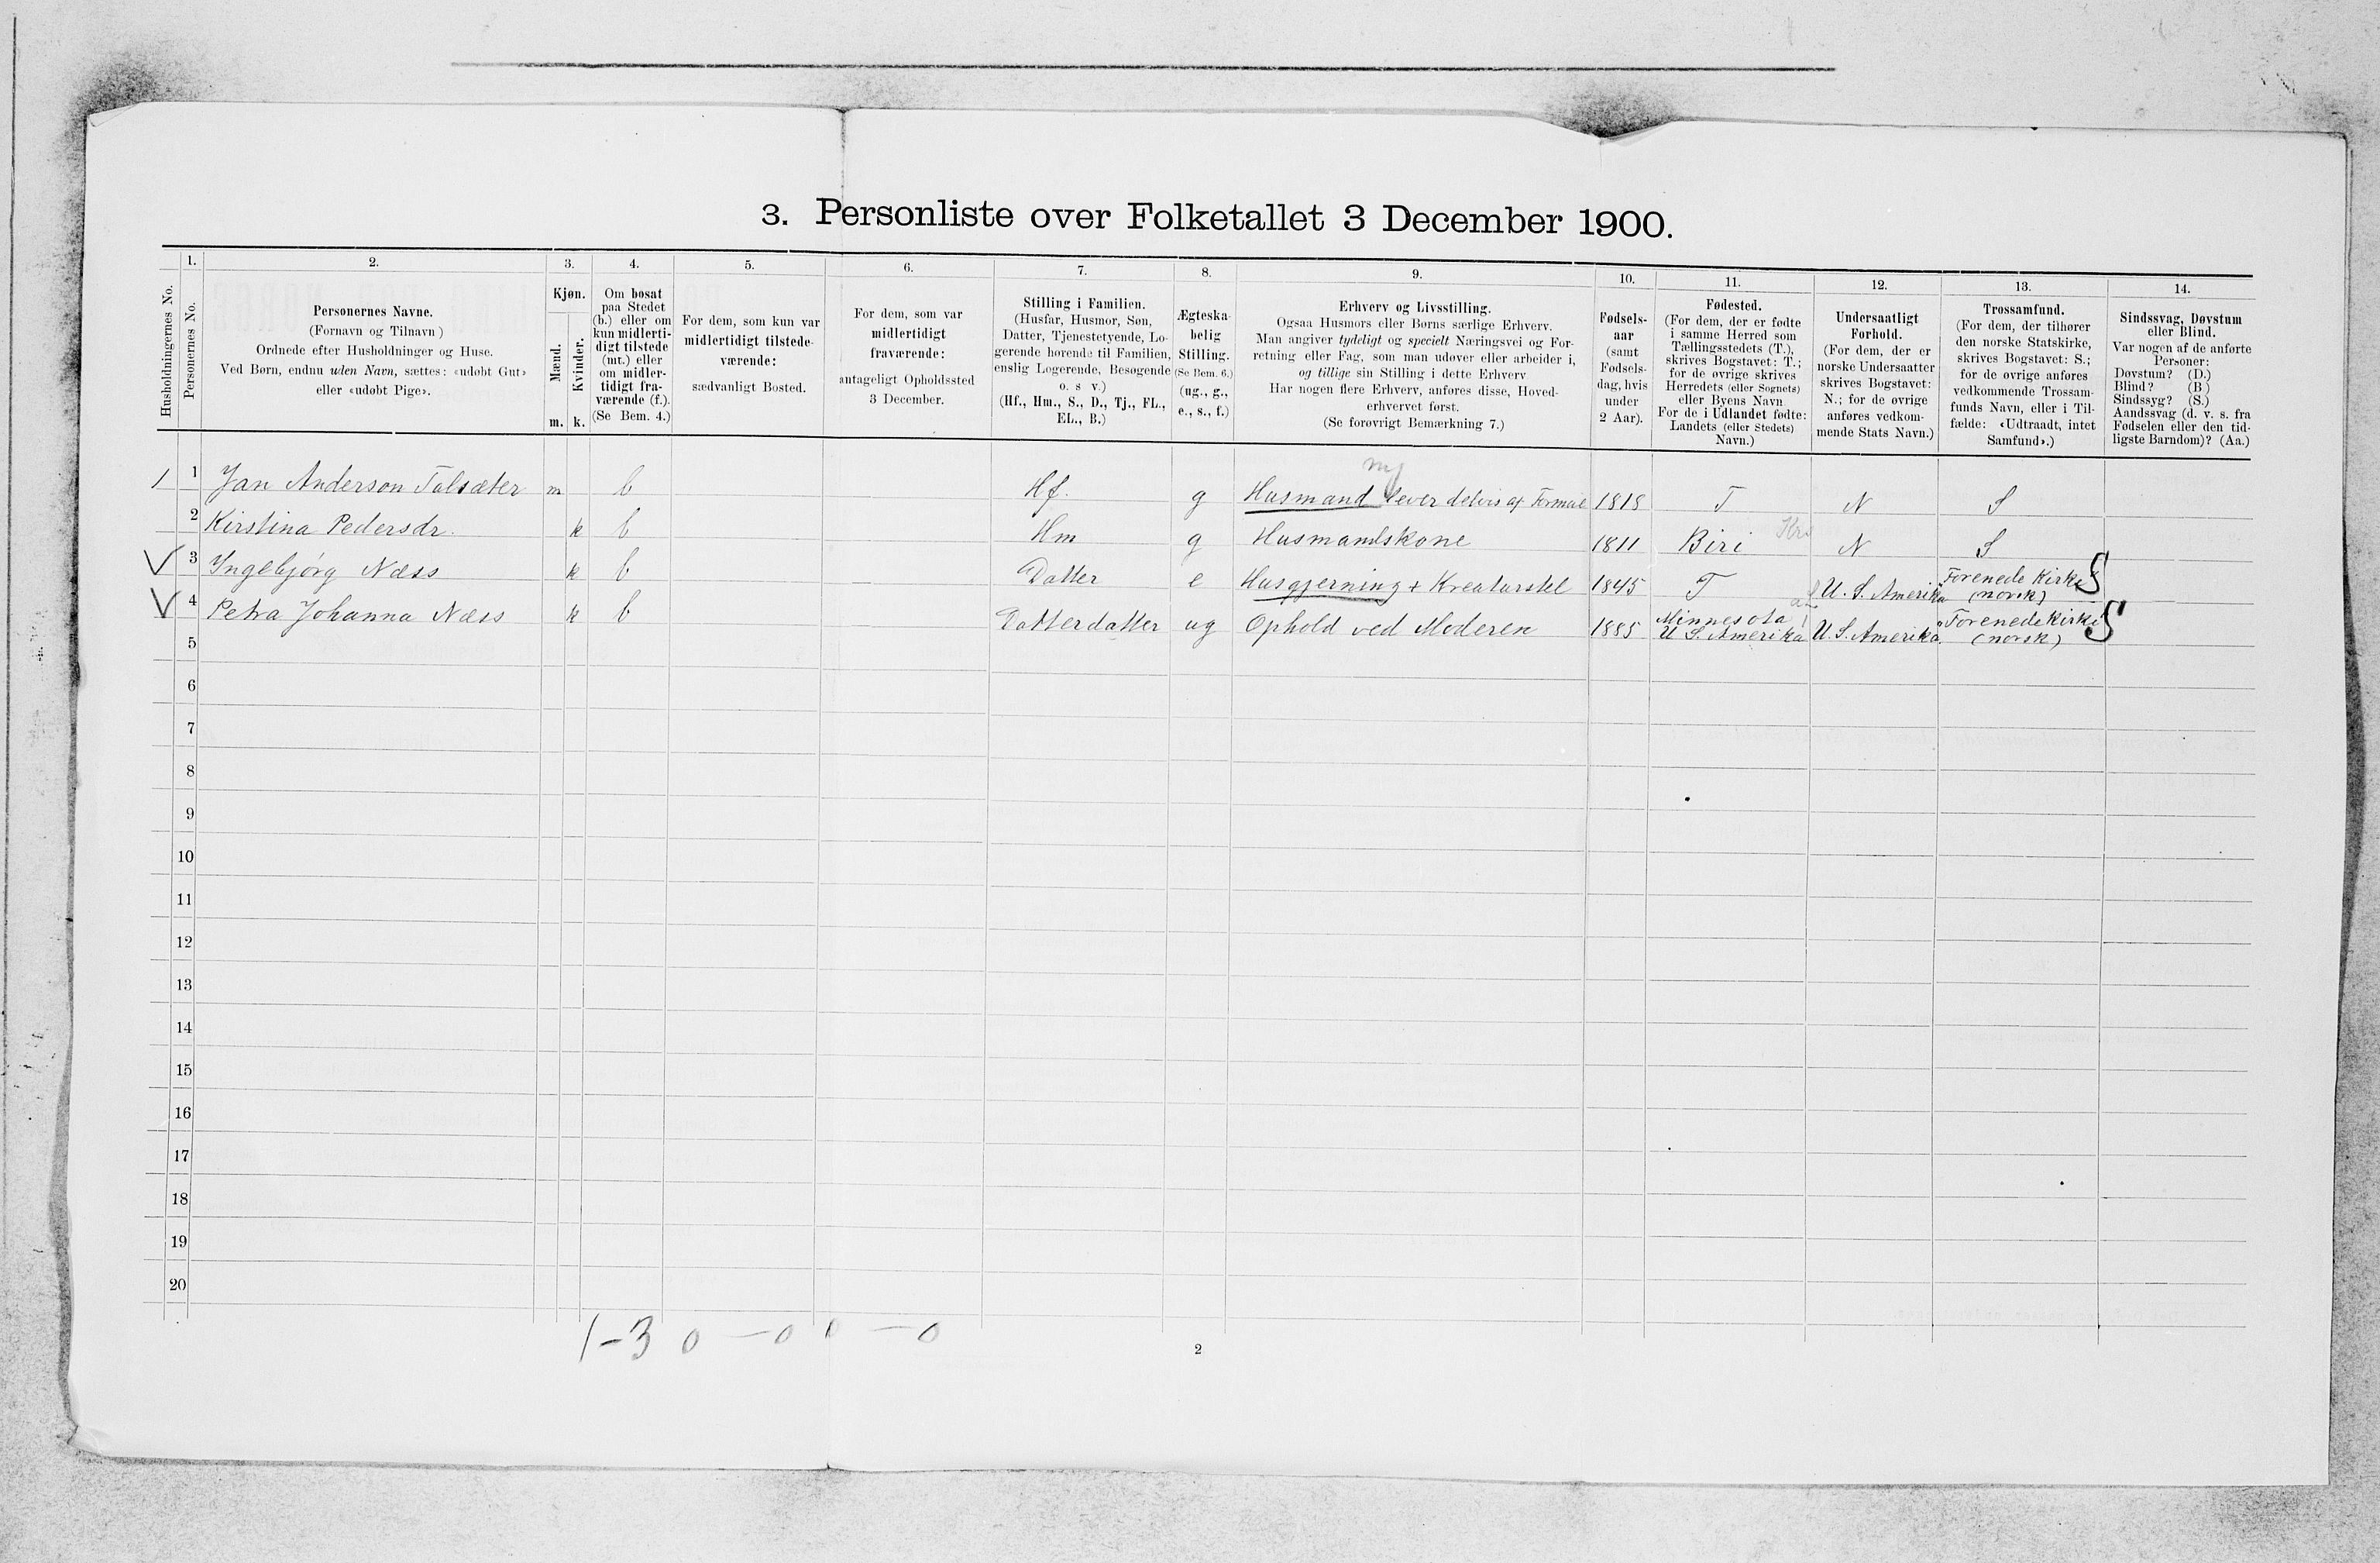 3. Personliste over Folketallet 3 December 1900.
1. 2. 3. 4. 5. 6. 7. 8. 9. 10. 11. 12. 13. 14.
Husholdningernes No.
Personernes No.
Personernes Navne.
(Fornavn og Tilnavn)
Ordnede efter Husholdninger og Huse.
Ved Børn, endnu uden Navn, sættes: «udøbt Gut»
eller «udøbt Pige».
Kjøn.
Mænd.
Kvinder.
m. k.
Om bosat
paa Stedet
(b.) eller om
kun midlerti-
digt tilstede
(mt.) eller
om midler-
tidigt fra-
værende (f.).
(Se Bem. 4.)
For dem, som kun var
midlertidigt tilstede-
værende:
sædvanligt Bosted.
For dem, som var
midlertidigt
fraværende:
antageligt Opholdssted
3 December.
Stilling i Familien.
(Husfar, Husmor, Søn,
Datter, Tjenestetyende, Lo-
gerende hørende til Familien,
enslig Logerende, Besøgende
o. s v.)
(Hf., Hm., S., D., Tj., FL.,
EL., B.)
Ægteska-
belig
Stilling.
(Se Bem. 6.)
(ug., g.,
e., s., f.)
Erhverv og Livsstilling.
Ogsaa Husmors eller Børns særlige Erhverv.
Man angiver tydeligt og specielt Næringsvei og For-
retning eller Fag, som man udøver eller arbeider i,
og tillige sin Stilling i dette Erhverv
Har nogen flere Erhverv, anføres disse, Hoved-
erhvervet først.
(Se forøvrigt Bemærkning 7.)
Fødsels-
aar
(samt
Fødsels-
dag, hvis
under
2 Aar).
Fødested.
(For dem, der er fødte
i samme Herred som
Tællingsstedets (T.),
skrives Bogstavet: T.;
for de øvrige skrives
Herredets (eller Sognets)
eller Byens Navn
For de i Udlandet fødte:
Landets (eller Stedets)
Navn.)
Undersaatligt
Forhold.
(For dem, der er
norske Undersaatter
skrives Bogstavet:
N.; for de øvrige
anføres vedkom-
mende Stats Navn.)
Trossamfund.
(For dem, der tilhører
den norske Statskirke,
skrives Bogstavet: S.;
for de øvrige anføres
vedkommende Trossam-
funds Navn, eller i Til-
fælde: «Udtraadt, intet
Samfund».)
Sindssvag, Døvstum
eller Blind.
Var nogen af de anførte
Personer:
Døvstum? (D.)
Blind? (B.)
Sindssyg? (S.)
Aandssvag (d. v. s. fra
Fødselen eller den tid-
ligste Barndom)? (Aa.)
my
1 1 Jan Anderson Talsæter m b Hf. g Husmand lever delvis af Formue 1818 T N S
2 Kirstina Pedersdr. k b Hm g Husmandskone 1811 Biri N S
V 3 Ingebjørg Næss k b Datter e Husgjerning + Kreaturstel 1845 T U. S. Amerika Forenede Kirke (norsk) S
V 4 Petra Johanna Næss k b Datterdatter ug Ophold ved Moderen 1885 Minnesota U S. Amerika U. S. Amerika Forenede Kirke (norsk) S
5
6
7
8
9
10
11
12
13
14
15
16
17
18
19
20
1-3 0 — 0 0 — 0
2